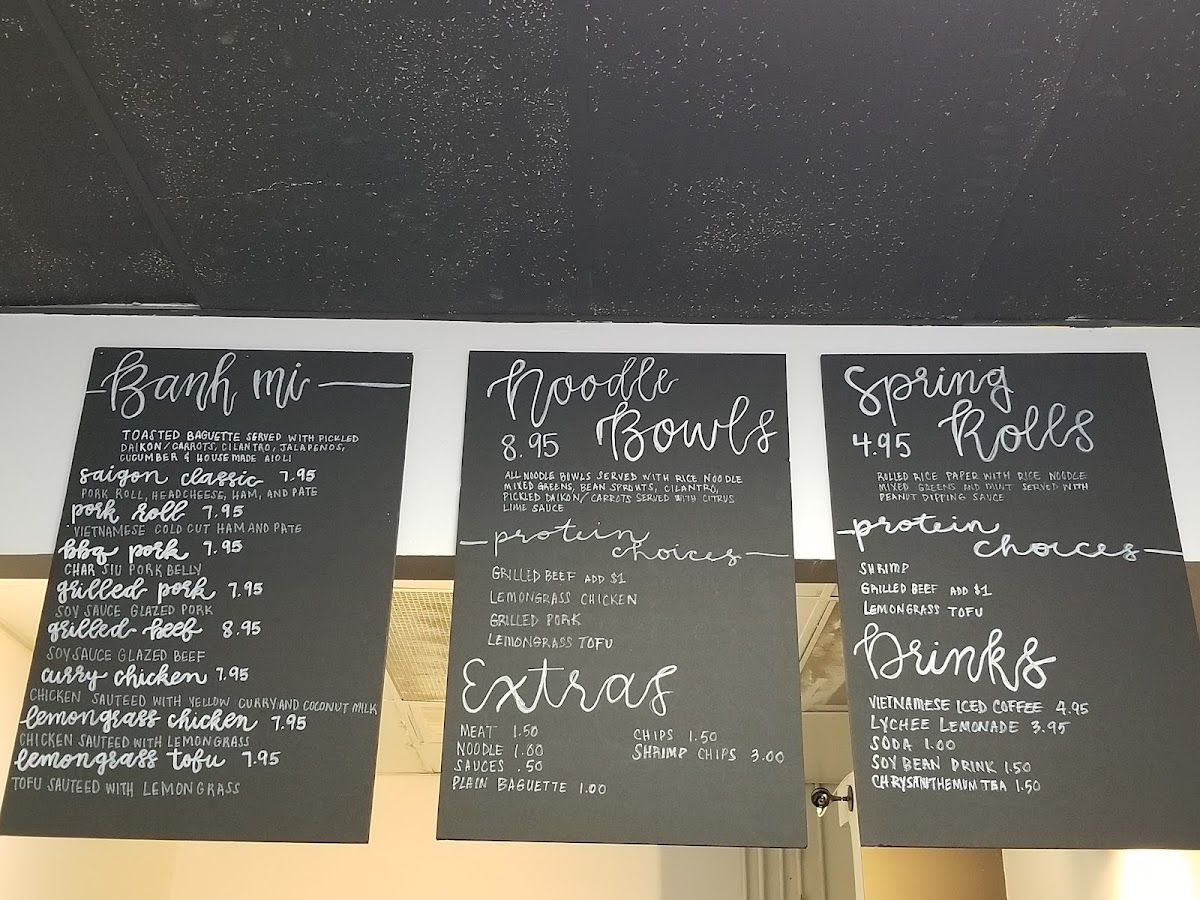 Banh mi
TOASTED BAGUETTE SERVED WITH PICKLED
DAIKON/CARROTS, CILANTRO, JALAPENOS,
CUCUMBER & HOUSE MADE AIOLI
saigon classic 7.95
PORK ROLL, HEADCHEESE, HAM, AND PATE
pork roll 7.95
VIETNAMESE COLD CUT HAM AND PATE
bbq pork 7.95
CHAR SIU PORK BELLY
grilled pork 7.95
SOY SAUCE GLAZED PORK
grilled beef 8.95
SOY SAUCE GLAZED BEEF
curry chicken 7.95
CHICKEN SAUTEED WITH YELLOW CURRY AND COCONUT MILK
lemongrass chicken 7.95
CHICKEN SAUTEED WITH LEMONGRASS
lemongrass tofu 7.95
TOFU SAUTEED WITH LEMONGRASS
Noodle
8.95 Bowls
ALL NOODLE BOWLS SERVED WITH RICE NOODLE
MIXED GREENS, BEAN SPROUTS, CILANTRO,
PICKLED DAIKON/CARROTS SERVED WITH CITRUS
LIME SAUCE
protein
choices
GRILLED BEEF ADD $1
LEMONGRASS CHICKEN
GRILLED PORK
LEMONGRASS TOFU
Extras
MEAT 1.50
NOODLE 1.00
SAUCES .50
PLAIN BAGUETTE 1.00
CHIPS 1.50
SHRIMP CHIPS 3.00
Spring
4.95 Rolls
ROLLED RICE PAPER WITH RICE NOODLE
MIXED GREENS AND MINT SERVED WITH
PEANUT DIPPING SAUCE
protein
choices
SHRIMP
GRILLED BEEF ADD $1
LEMONGRASS TOFU
Drinks
VIETNAMESE ICED COFFEE 4.95
LYCHEE LEMONADE 3.95
SODA 1.00
SOY BEAN DRINK 1.50
CHRYSANTHEMUM TEA 1.50